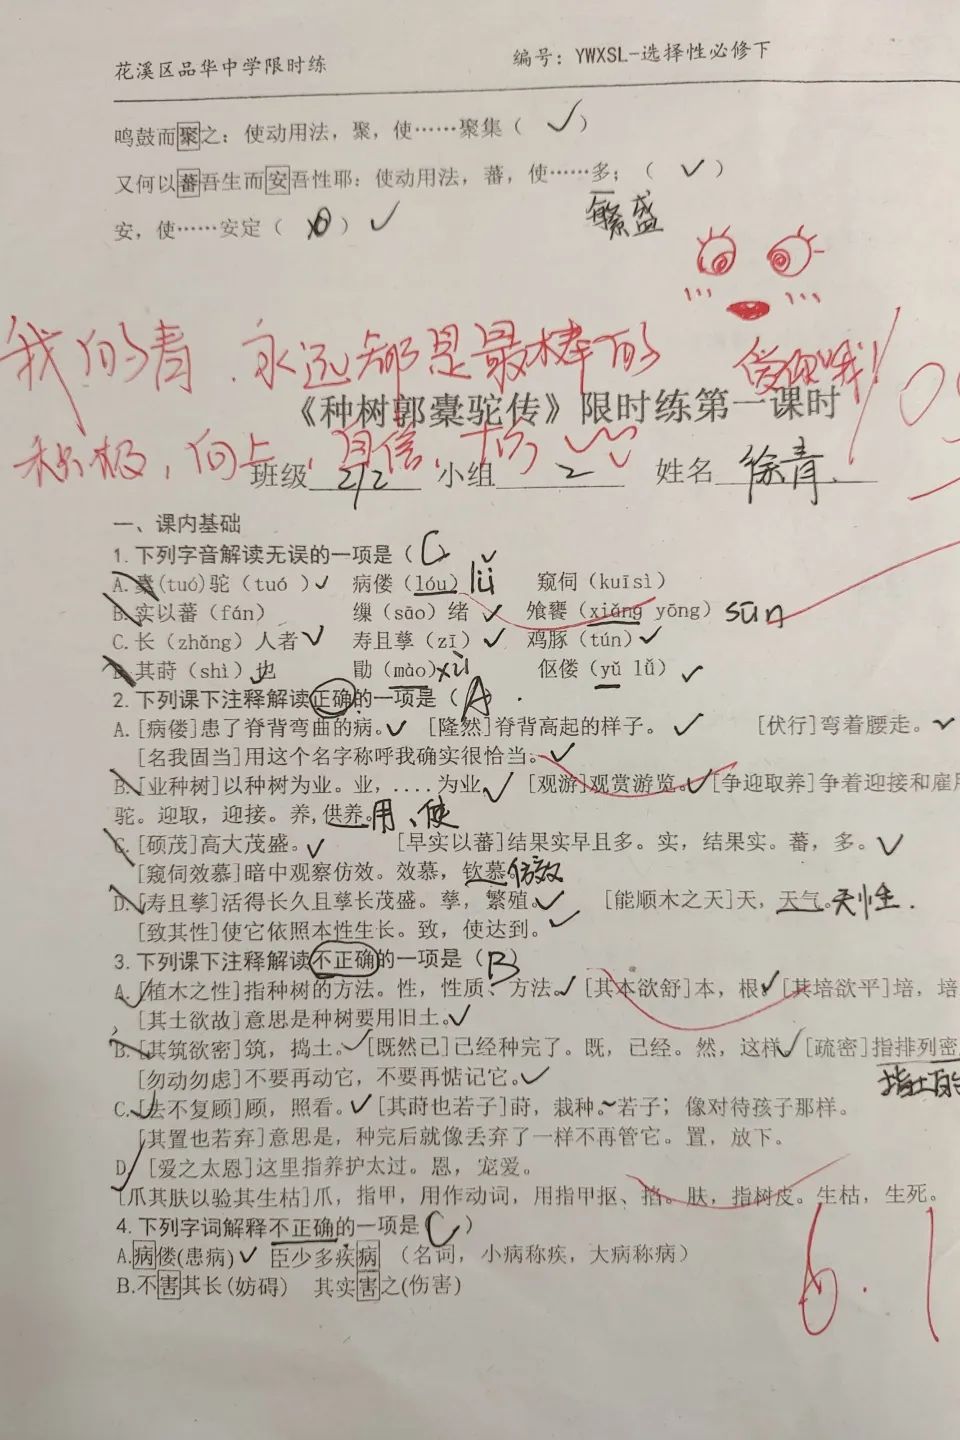 花溪区品华中学限时练 编号：YWXSL-选择性必修下
鸣鼓而聚之：使动用法，聚，使……聚集（ ✓ ）
又何以蕃吾生而安吾性耶：使动用法，蕃，使……多；（ ✓ ）
繁盛
安，使……安定（ ）✓
我的青，永远都是最棒的
《种树郭橐驼传》限时练第一课时
积极，向上，自信，
班级 212 小组 2 姓名 徐青
一、课内基础
1.下列字音解读无误的一项是（C）
A.橐(tuó)驼（tuó ）✓ 病偻（lóu）lǚ 窥伺（kuīsì）
B.实以蕃（fán） 缫（sāo）绪 ✓ 飧饔（xiǎng yōng）sūn
C.长（zhǎng）人者 ✓ 寿且孳（zī）✓ 鸡豚（tún）✓
D.其莳（shì）也 勖（mào）xù 伛偻（yǔ lǔ）✓
2.下列课下注释解读正确的一项是（A
A.[病偻]患了脊背弯曲的病。✓ [隆然]脊背高起的样子。✓ [伏行]弯着腰走。✓
[名我固当]用这个名字称呼我确实很恰当。✓
B.[业种树]以种树为业。业，....为业 ✓ [观游]观赏游览。✓ [争迎取养]争着迎接和雇用
驼。迎取，迎接。养,供养。用、使
C.[硕茂]高大茂盛。✓ [早实以蕃]结果实早且多。实，结果实。蕃，多。✓
[窥伺效慕]暗中观察仿效。效慕，钦慕 仿效
D.[寿且孳]活得长久且孳长茂盛。孳，繁殖。✓ [能顺木之天]天，天气。天性．
[致其性]使它依照本性生长。致，使达到。✓
3.下列课下注释解读不正确的一项是（B）
A.[植木之性]指种树的方法。性，性质、方法。✓ [其本欲舒]本，根。✓ [其培欲平]培，培
，[其土欲故]意思是种树要用旧土。✓
B.[其筑欲密]筑，捣土。✓ [既然已]已经种完了。既，已经。然，这样 ✓ [疏密]指排列密
[勿动勿虑]不要再动它，不要再惦记它。✓
C.[去不复顾]顾，照看。✓ [其莳也若子]莳，栽种。~若子；像对待孩子那样。
[其置也若弃]意思是，种完后就像丢弃了一样不再管它。置，放下。
D. [爱之太恩]这里指养护太过。恩，宠爱。
[爪其肤以验其生枯]爪，指甲，用作动词，用指甲抠、掐。肤，指树皮。生枯，生死。
4.下列字词解释不正确的一项是 C ）
A.病偻(患病) ✓ 臣少多疾病 （名词，小病称疾，大病称病）
B.不害其长(妨碍) 其实害之(伤害)
6.1